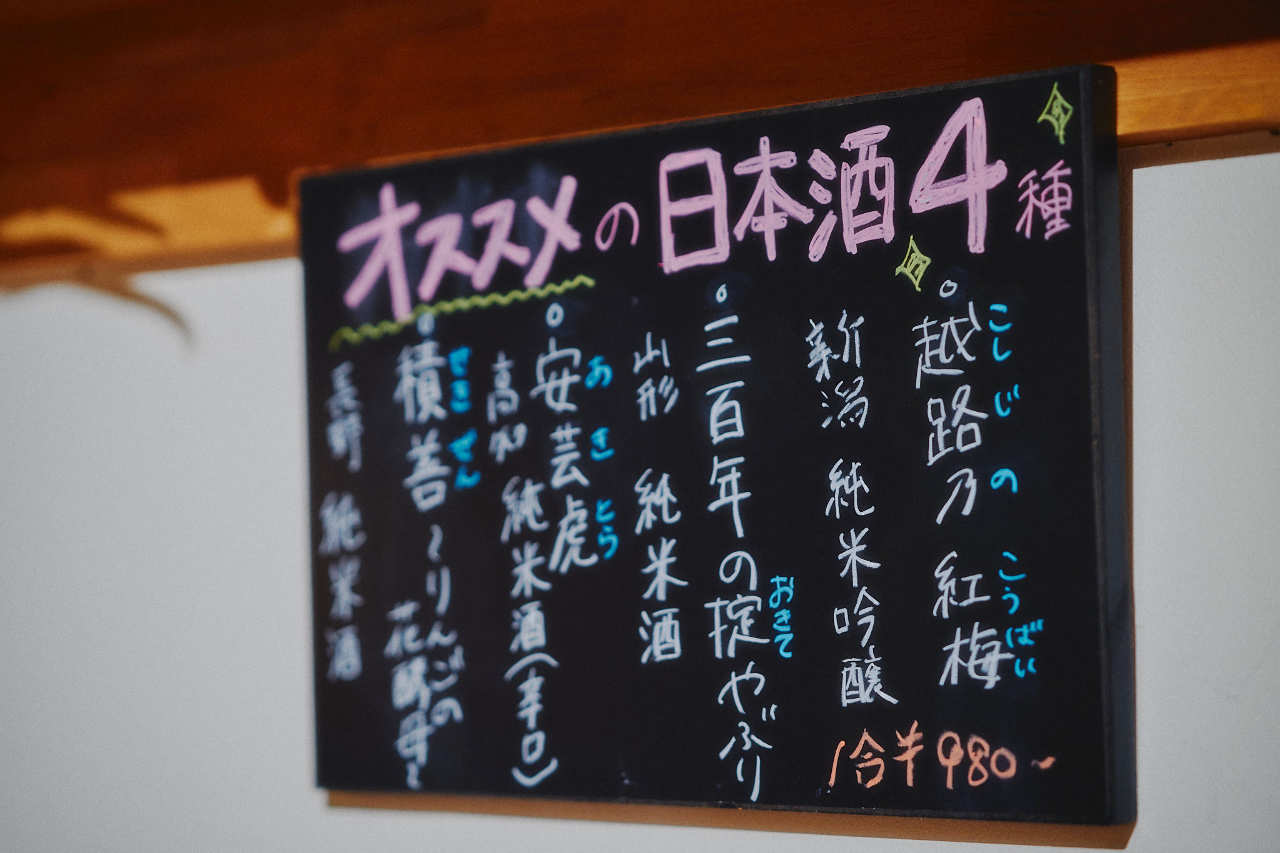 オススメの日本酒4種
越路乃 紅梅
こしじ の こうばい
新潟 純米吟醸
三百年の掟やぶり
おきて
山形 純米酒
安芸虎
あき とら
高知 純米酒(辛口)
積善~りんごの
せきぜん
花酵母~
長野 純米酒
1合半 980~